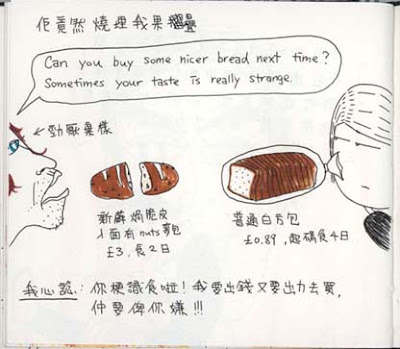 佢竟然燒埋我果疊
Can you buy some nicer bread next time?
Sometimes your taste is really strange.
←勁厭棄樣
新鮮焗脆皮
入面有nuts麥包
£3,食2日
普通白方包
£0.89,起碼食4日
我心諗:你梗識食啦!我要出錢又要出力去買,
仲要俾你嫌!!!